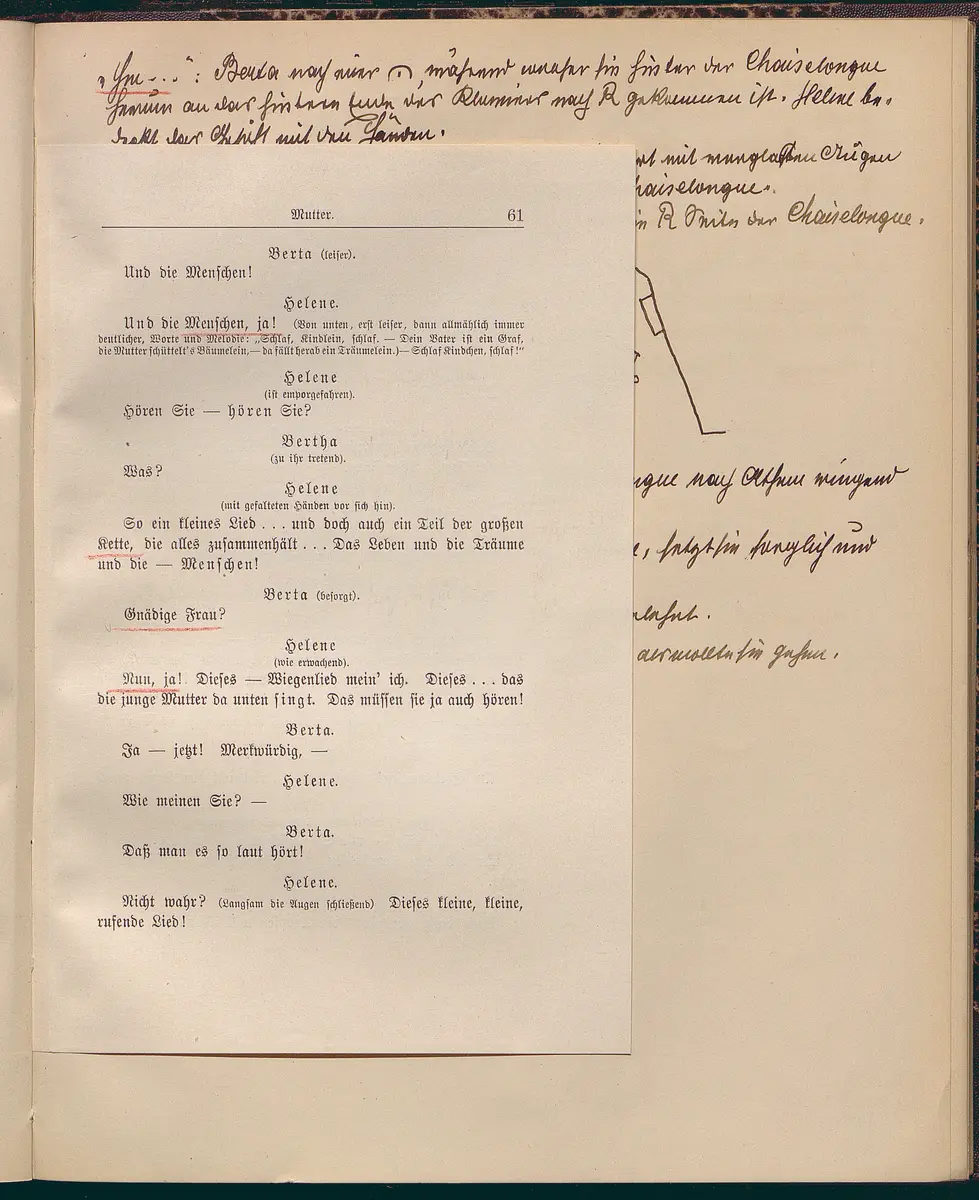 „Hm - . . .“: Berta nach einer ⌒, während welcher sie hinter der Chaiselongue
herum an das hintere Ende des Klaviers nach R gekommen ist. Helene be-
deckt das Gesicht mit den Händen.
mit verglasten Augen
haiselongue.
R Seite der Chaiselongue.
Mutter. 61
Berta (leiser).
Und die Menschen!
Helene.
Und die Menschen, ja! (Von unten, erst leiser, dann allmählich immer
deutlicher, Worte und Melodie: „Schlaf, Kindlein, schlaf. — Dein Vater ist ein Graf,
die Mutter schüttelt's Bäumelein,— da fällt herab ein Träumelein.)— Schlaf Kindchen, schlaf!“
Helene
(ist emporgefahren).
Hören Sie — hören Sie?
Bertha
(zu ihr tretend).
Was?
Helene
(mit gefalteten Händen vor sich hin).
So ein kleines Lied . . . und doch auch ein Teil der großen
Kette, die alles zusammenhält . . . Das Leben und die Träume
und die — Menschen!
Berta (besorgt).
Gnädige Frau?
Helene
(wie erwachend).
Nun, ja! Dieses — Wiegenlied mein' ich. Dieses . . . das
die junge Mutter da unten singt. Das müssen sie ja auch hören!
Berta.
Ja — jetzt! Merkwürdig, —
Helene.
Wie meinen Sie? —
Berta.
Daß man es so laut hört!
Helene.
Nicht wahr? (Langsam die Augen schließend) Dieses kleine, kleine,
rufende Lied!
ngue nach Athem ringend
, setzt sie sorglich und
lehnt.
als wollte sie gehen.